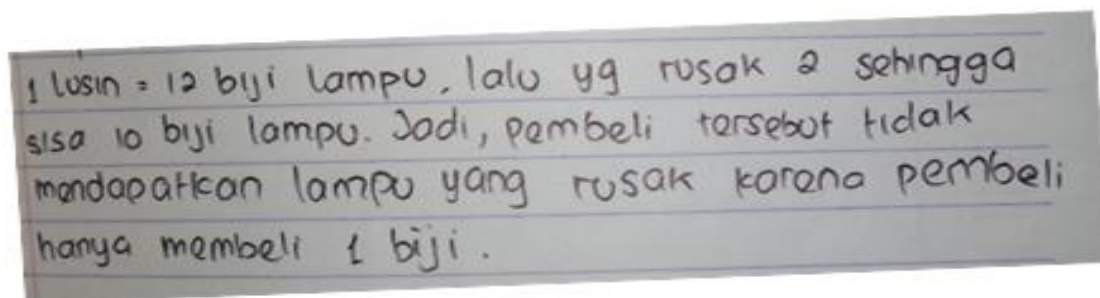 1 lusin = 12 biji lampu, lalu yg rusak 2 sehingga
sisa 10 biji lampu. Jadi, pembeli tersebut tidak
mendapatkan lampu yang rusak karena pembeli
hanya membeli 1 biji.